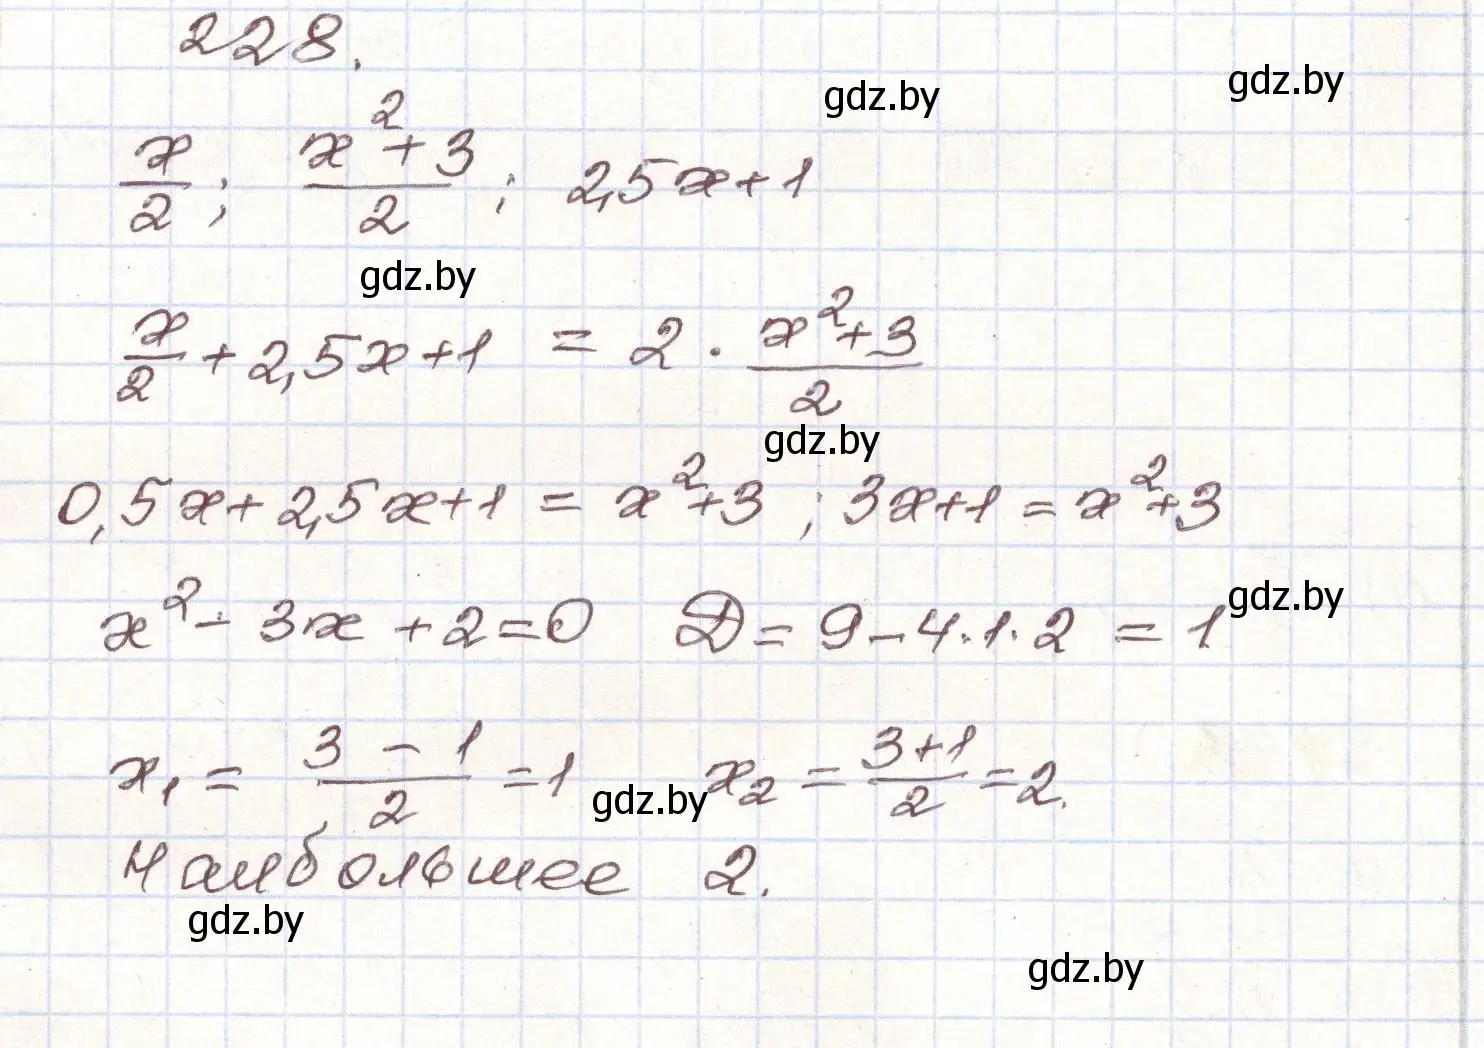 228.
gdz.by
gdz.by
x/2; (x²+3)/2; 2,5x+1
gdz.by
x/2 + 2,5x+1 = 2 · (x²+3)/2
gdz.by
0,5x+2,5x+1 = x²+3; 3x+1 = x²+3
x² - 3x + 2 = 0 D = 9 - 4·1·2 = 1
gdz.by
x₁ = (3 - 1)/2 = 1 x₂ = (3+1)/2 = 2.
gdz.by
Наибольшее 2.
gdz.by
gdz.by